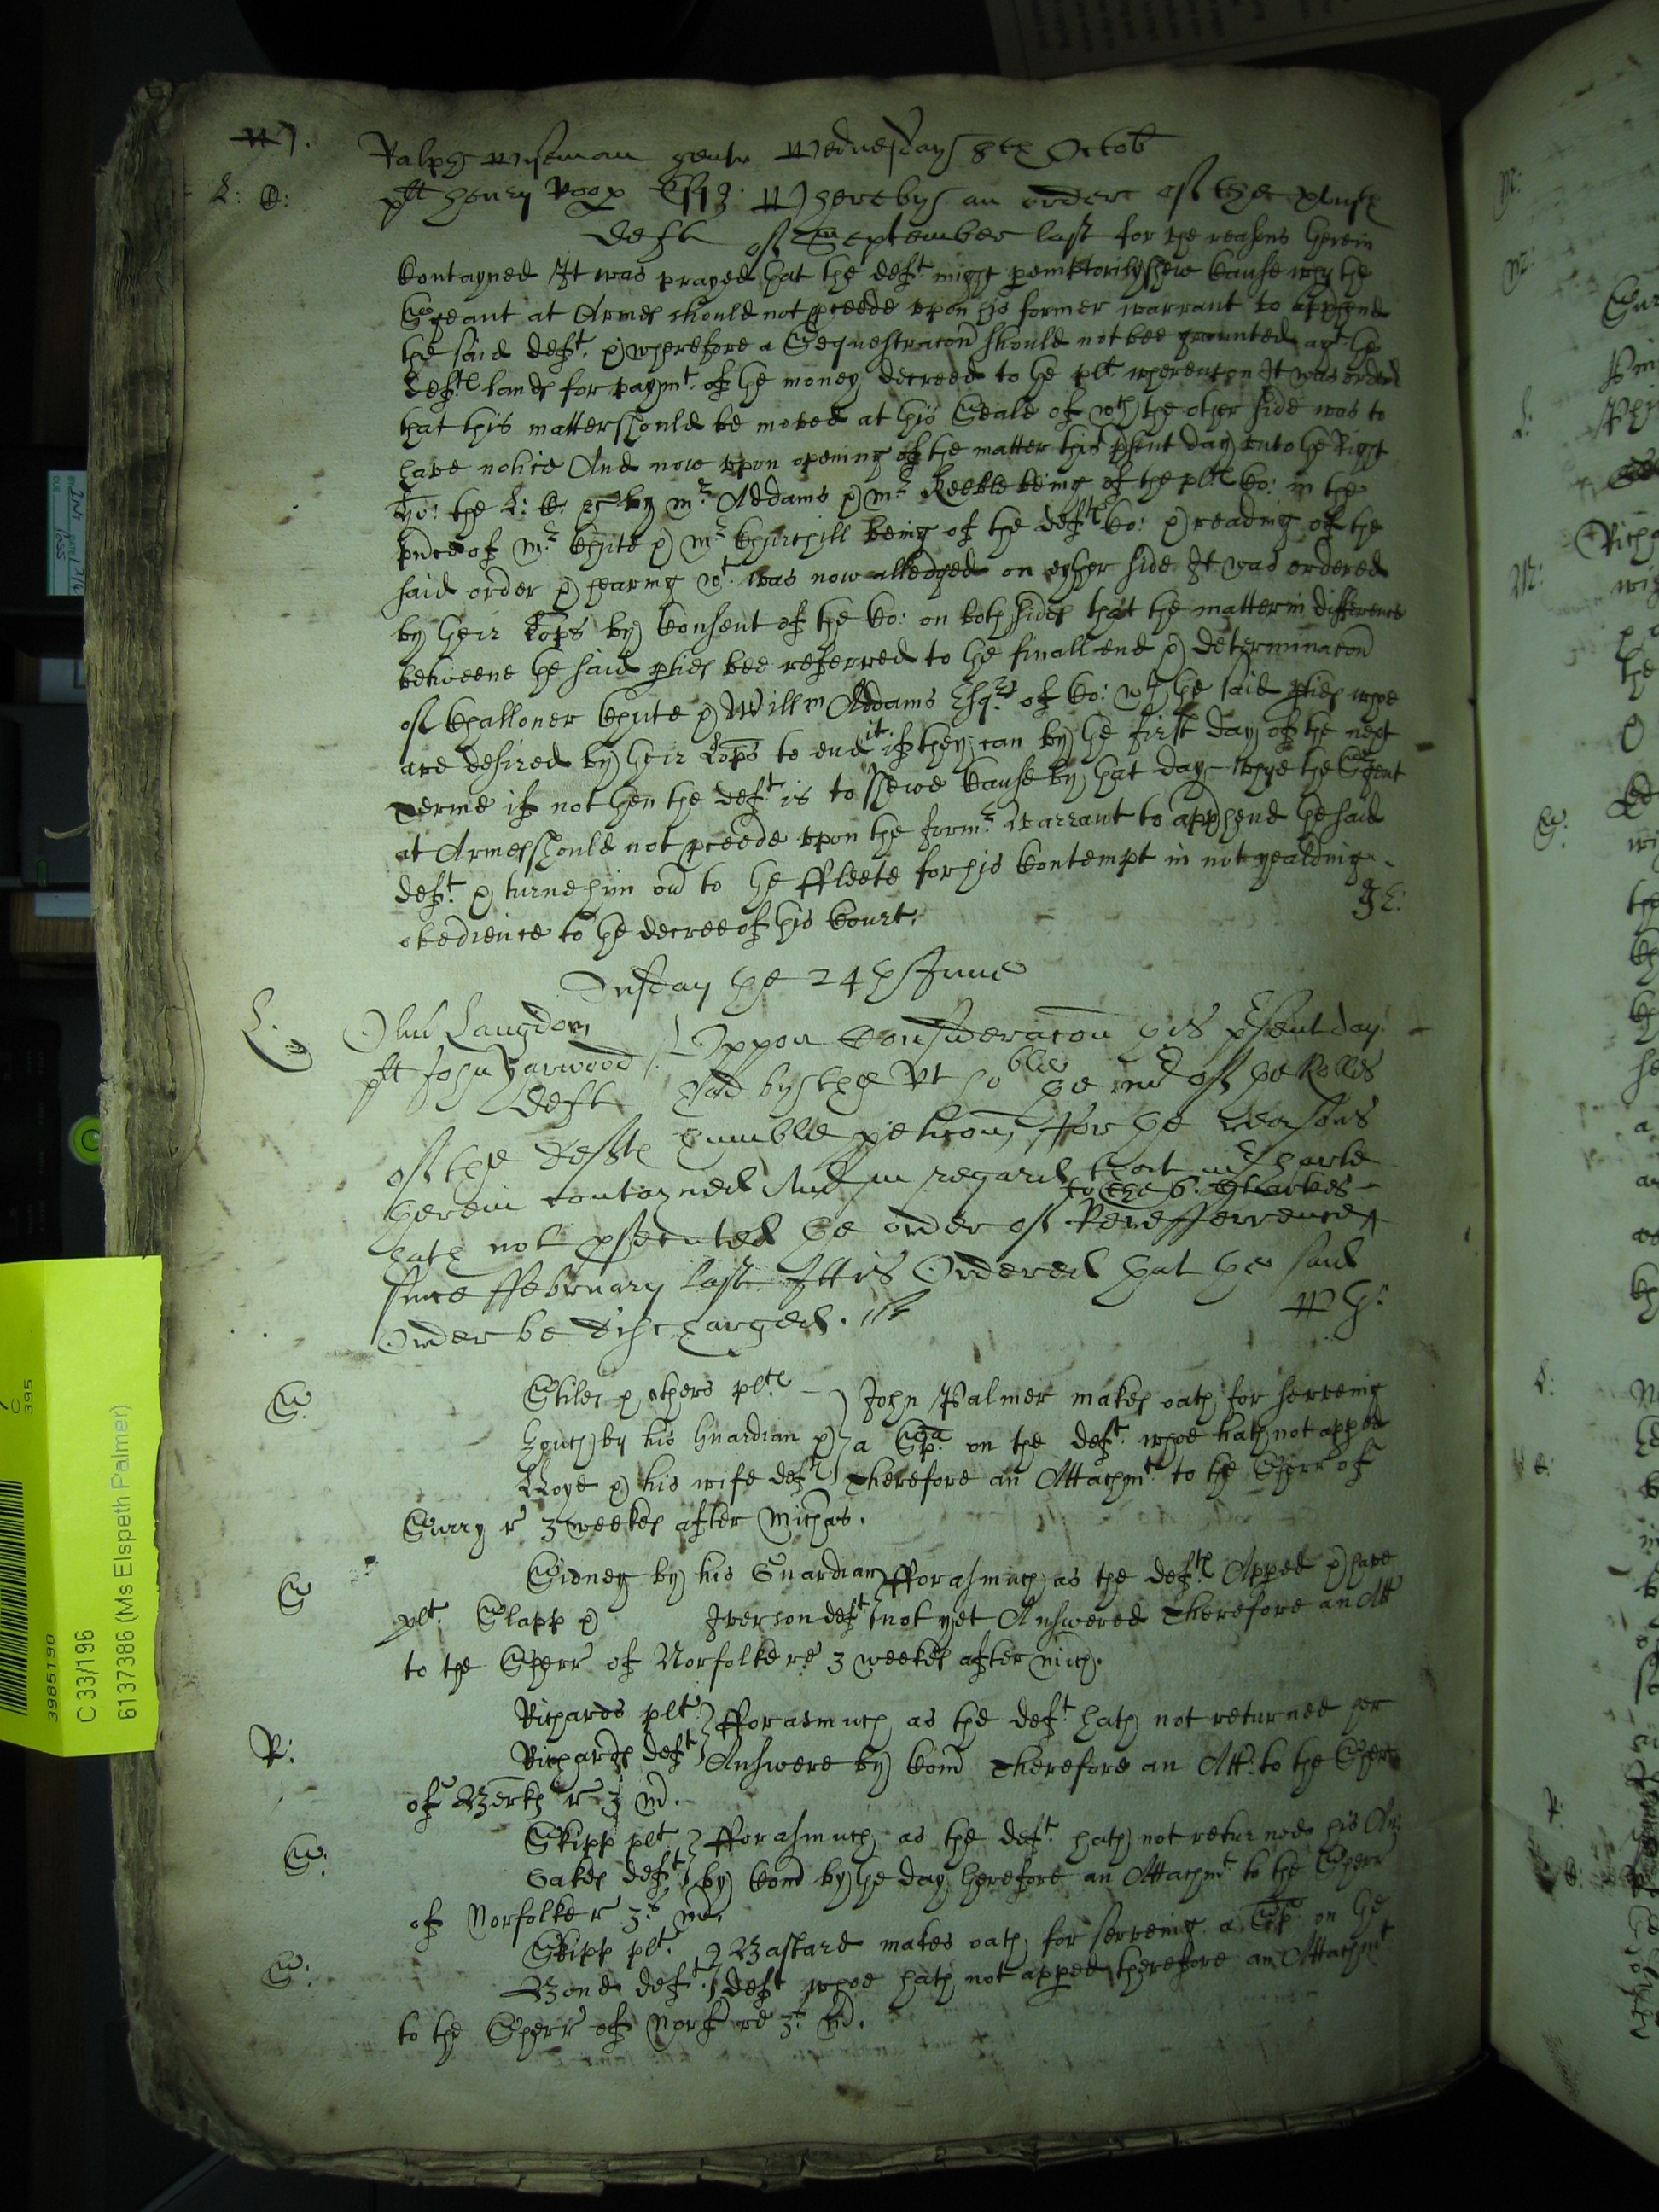 W
L: C:
Ralph Wiseman gent Wednesday 8th Octob
plt henry Eſqz Whereby an order of the
deft of September last for the reasons therein
Contayned It was prayed that the deft might pemptorily shew Cause why the
Sgeant at Armes should not pceede vpon his former warrant to appħend
the said deft & wherefore a Sequestracon should not bee graunted agt the
defts lands for paymt of the money decreed to the plt wherevpon It was ordred
that this matter should be moved at this Seale of wch the other side was to
have notice And now vpon opening of the matter this psent day vnto the Right
ho: the L: C: by mr Addams & mr Keeble being of the plts Co: in the
pnce of mr Chute & mr Churchill being of the defts Co: & reading of the
said order & hearing wt was now alledged on eyther side It was ordered
by their Lops by Consent of the Co: on both sides that the matter in difference
betweene the said pties bee referred to the finall end & determinacon
of Challoner Chute & Willm Addams Esqrs of Co: wth the said pties whoe
are desired by their Lops to end it if they can by the first day of the next
Terme if not then the deft is to shewe Cause by that day whye the Sgeant
at Armes should not pceede vpon the formr Warrant to appħend the said
deft & turne him ou to the ffleete for his Contempt in not yealding
obedience to the decree of this Court.
Tusday the 24th June
L.
Langdon Vppon Consideracon this psent day
plt John Harwood had by the Rt hoble the mr of the Rolles
deft
of the defts humble peticon, ffor the reasons
therein contayned And in regard that mr
to the 6 Clarkes
hath not psecuted the order of Refference
since ffebruary last It is Ordered that the said
Order be discharged.
S
Stiles & others plts John Palmer makes oath for serveing
Zouch by his Guardian & a Spa on the deft whoe hath not apped
& his wife defts Therefore an Attachmt to the Sherr of
Surry r 3 weekes after Michas.
S
Sidney by his Guardian fforasmuch as the defts Apped & have
plt. Slapp & Iverson defts not yet Answered Therefore an Att
to the Sherr of Norfolke re 3 weekes after mich.
R:
Richards plt fforasmuch as the deft hath not returned her
Richards deft Answere by Com Therefore an Att: to the Sherr
of Berks r 3 m.
S:
Skipp plt fforasmuch as the deft hath not returned his An:
Oakes deft by Com by the day therefore an Attachmt to the Sherr
of Norfolke r 3s m.
S:
Skipp plt Bastard makes oath for serveing a Spa on the
Bond deft deft whoe hath not apped therefore an Attachmt
to the Sherr of Norf re 3s m.
395
3985190
C 33/196
6137386 (Ms Elspeth Palmer)